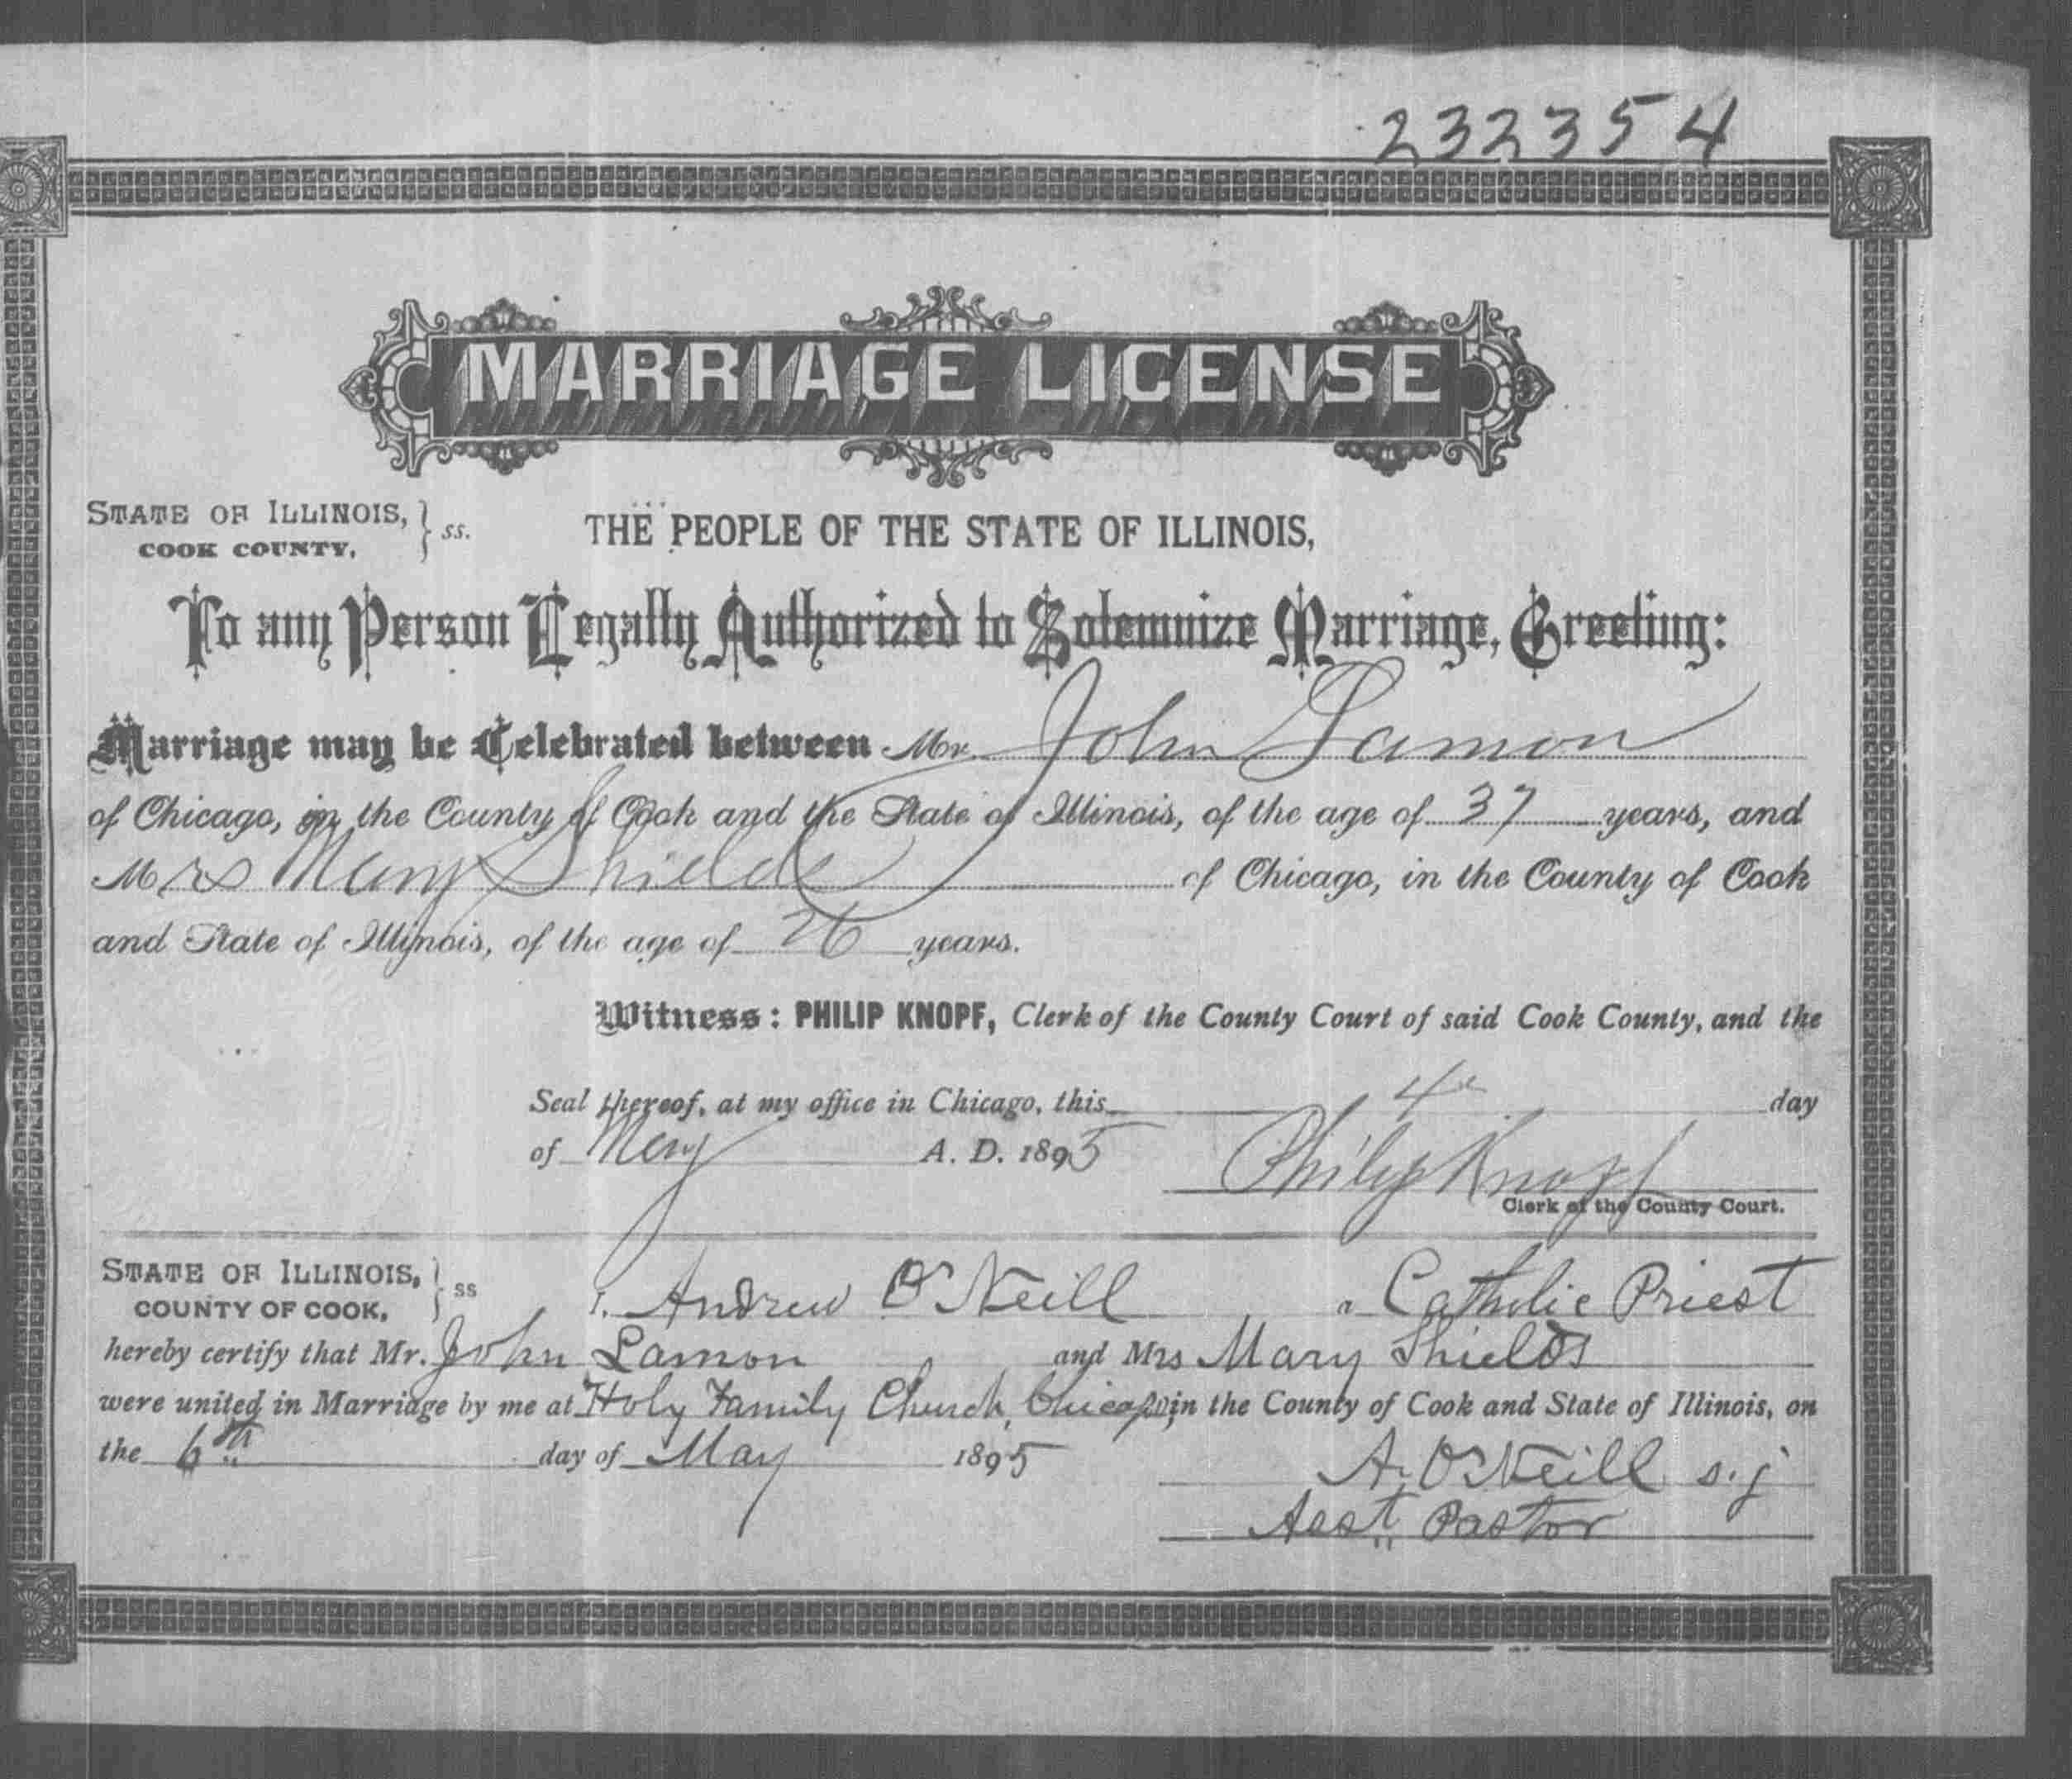 232354
MARRIAGE LICENSE
STATE OF ILLINOIS, } ss.
COOK COUNTY,
THE PEOPLE OF THE STATE OF ILLINOIS,
To any Person Legally Authorized to Solemnize Marriage, Greeting:
Marriage may be Celebrated between Mr. John Lamon
of Chicago, in the County of Cook and the State of Illinois, of the age of 37 years, and
Mrs Mary Shields of Chicago, in the County of Cook
and State of Illinois, of the age of 26 years.
Witness: PHILIP KNOPF, Clerk of the County Court of said Cook County, and the
Seal thereof, at my office in Chicago, this 4th day
of May A. D. 1895 Philip Knopf
Clerk of the County Court.
STATE OF ILLINOIS, } ss I, Andrew O'Neill a Catholic Priest
COUNTY OF COOK,
hereby certify that Mr. John Lamon and Mrs Mary Shields
were united in Marriage by me at Holy Family Church, Chicago, in the County of Cook and State of Illinois, on
the 6th day of May 1895
A. O'Neill s.j
Asst Pastor